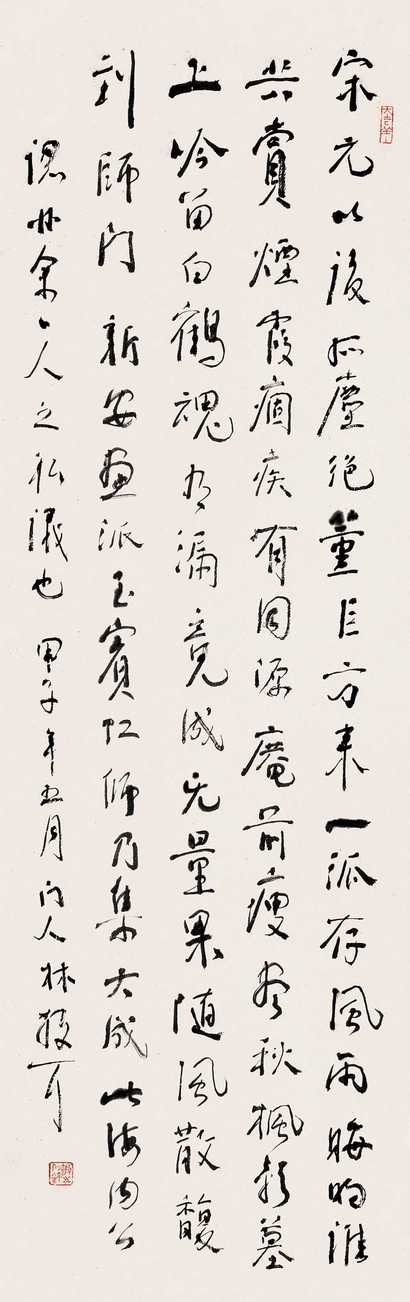 宋元以後孤塵絕董巨方來一派存風雨晦明誰
共賞煙霞痼疾有同源庵前瘦尽秋楓影墓
上吟留白鶴魂有漏竟成无量果随風散馥
到師门 新安画派至賓虹师乃集大成此海内公
認非余一人之私議也 甲子年五月 门人林散耳